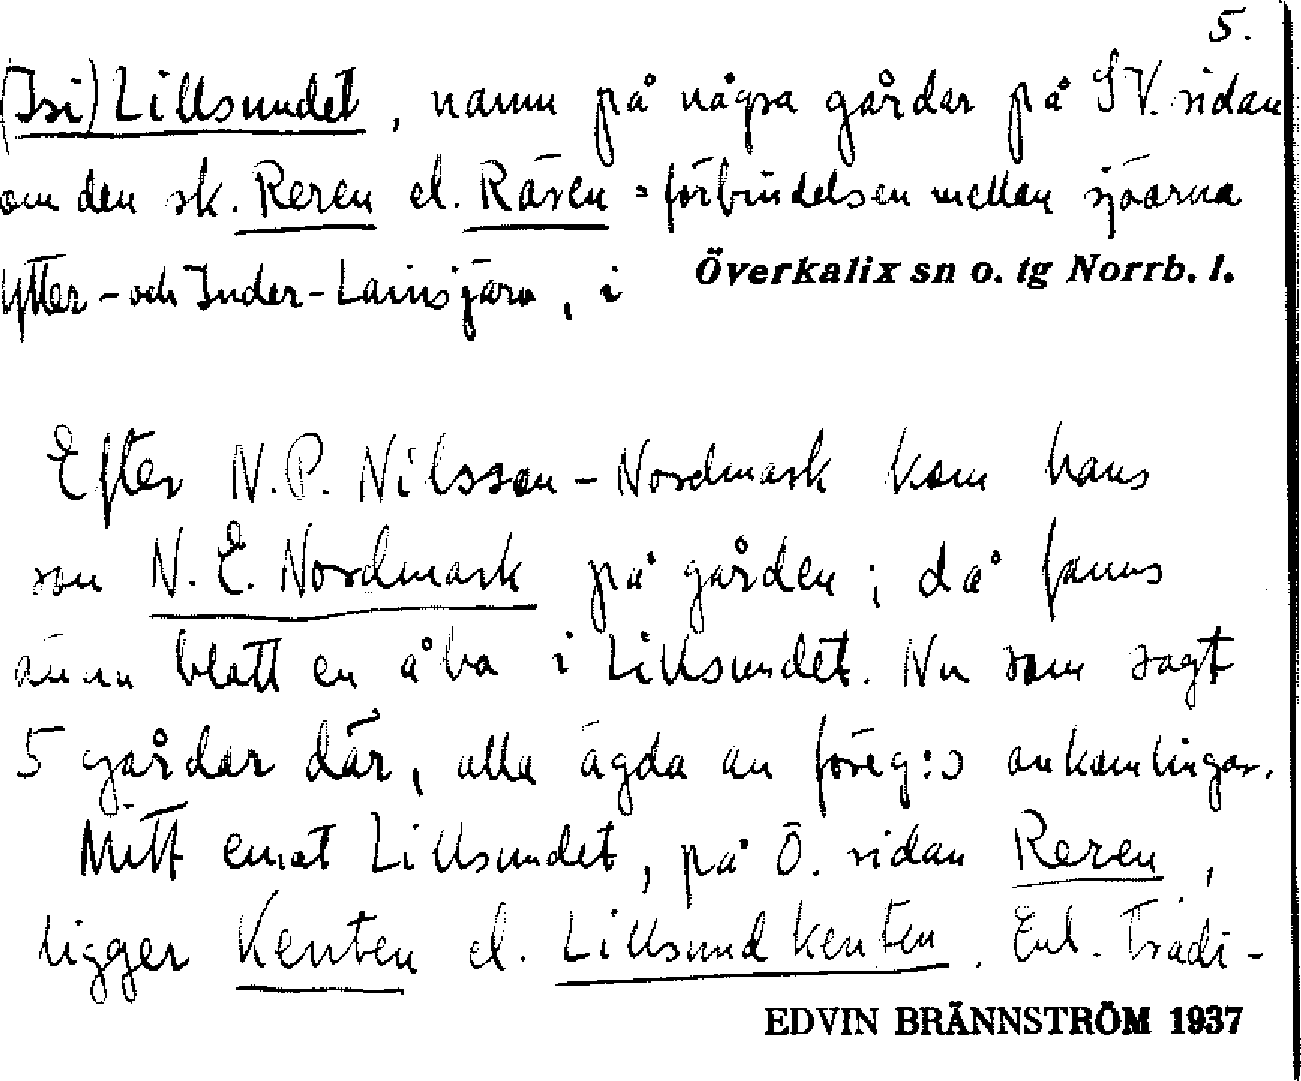 5.
(Isi) Lillsundet, namn på några gårdar på SV. sidan
om den sk. Reren el. Rären = förbindelsen mellan sjöarna
Ytter- och Inder-Lainsjärv, i Överkalix sn o. tg Norrb. l.
Efter N.P. Nilsson-Nordmark kom hans
son N.E. Nordmark på gården; då fanns
ännu blott en åbo i Lillsundet. Nu som sagt
5 gårdar där, alla ägda av föreg:s avkomlingar.
Mitt emot Lillsundet, på Ö. sidan Reren,
ligger Kenten el. Lillsundkenten. Enl. tradi-
EDVIN BRÄNNSTRÖM 1937